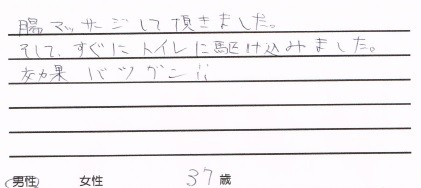 腸マッサージして頂きました。
そして、すぐにトイレに駆け込みました。
効果バツグン!!
男性 女性 37歳